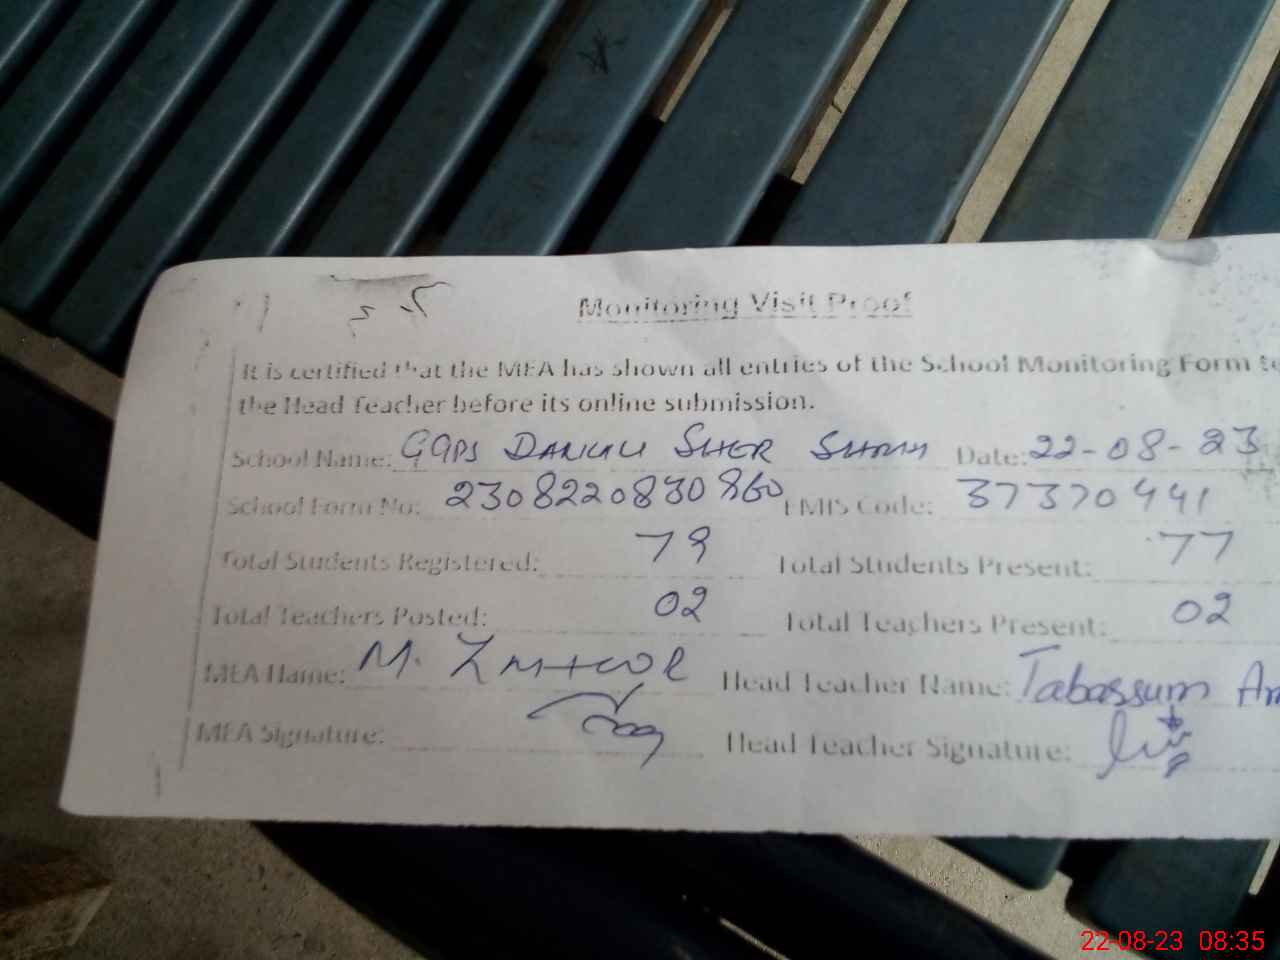 Monitoring Visit Proof
It is certified that the MEA has shown all entries of the School Monitoring Form to
the Head Teacher before its online submission.
School Name: GGPS SHER Date: 22-08-23
School Form No: 2308220830860 EMIS Code: 37370441
Total Students Registered: 79 Total Students Present: 77
Total Teachers Posted: 02 Total Teachers Present: 02
MEA Name: M. Head Teacher Name: Tabassum
MEA Signature: Head Teacher Signature:
22-08-23 08:35